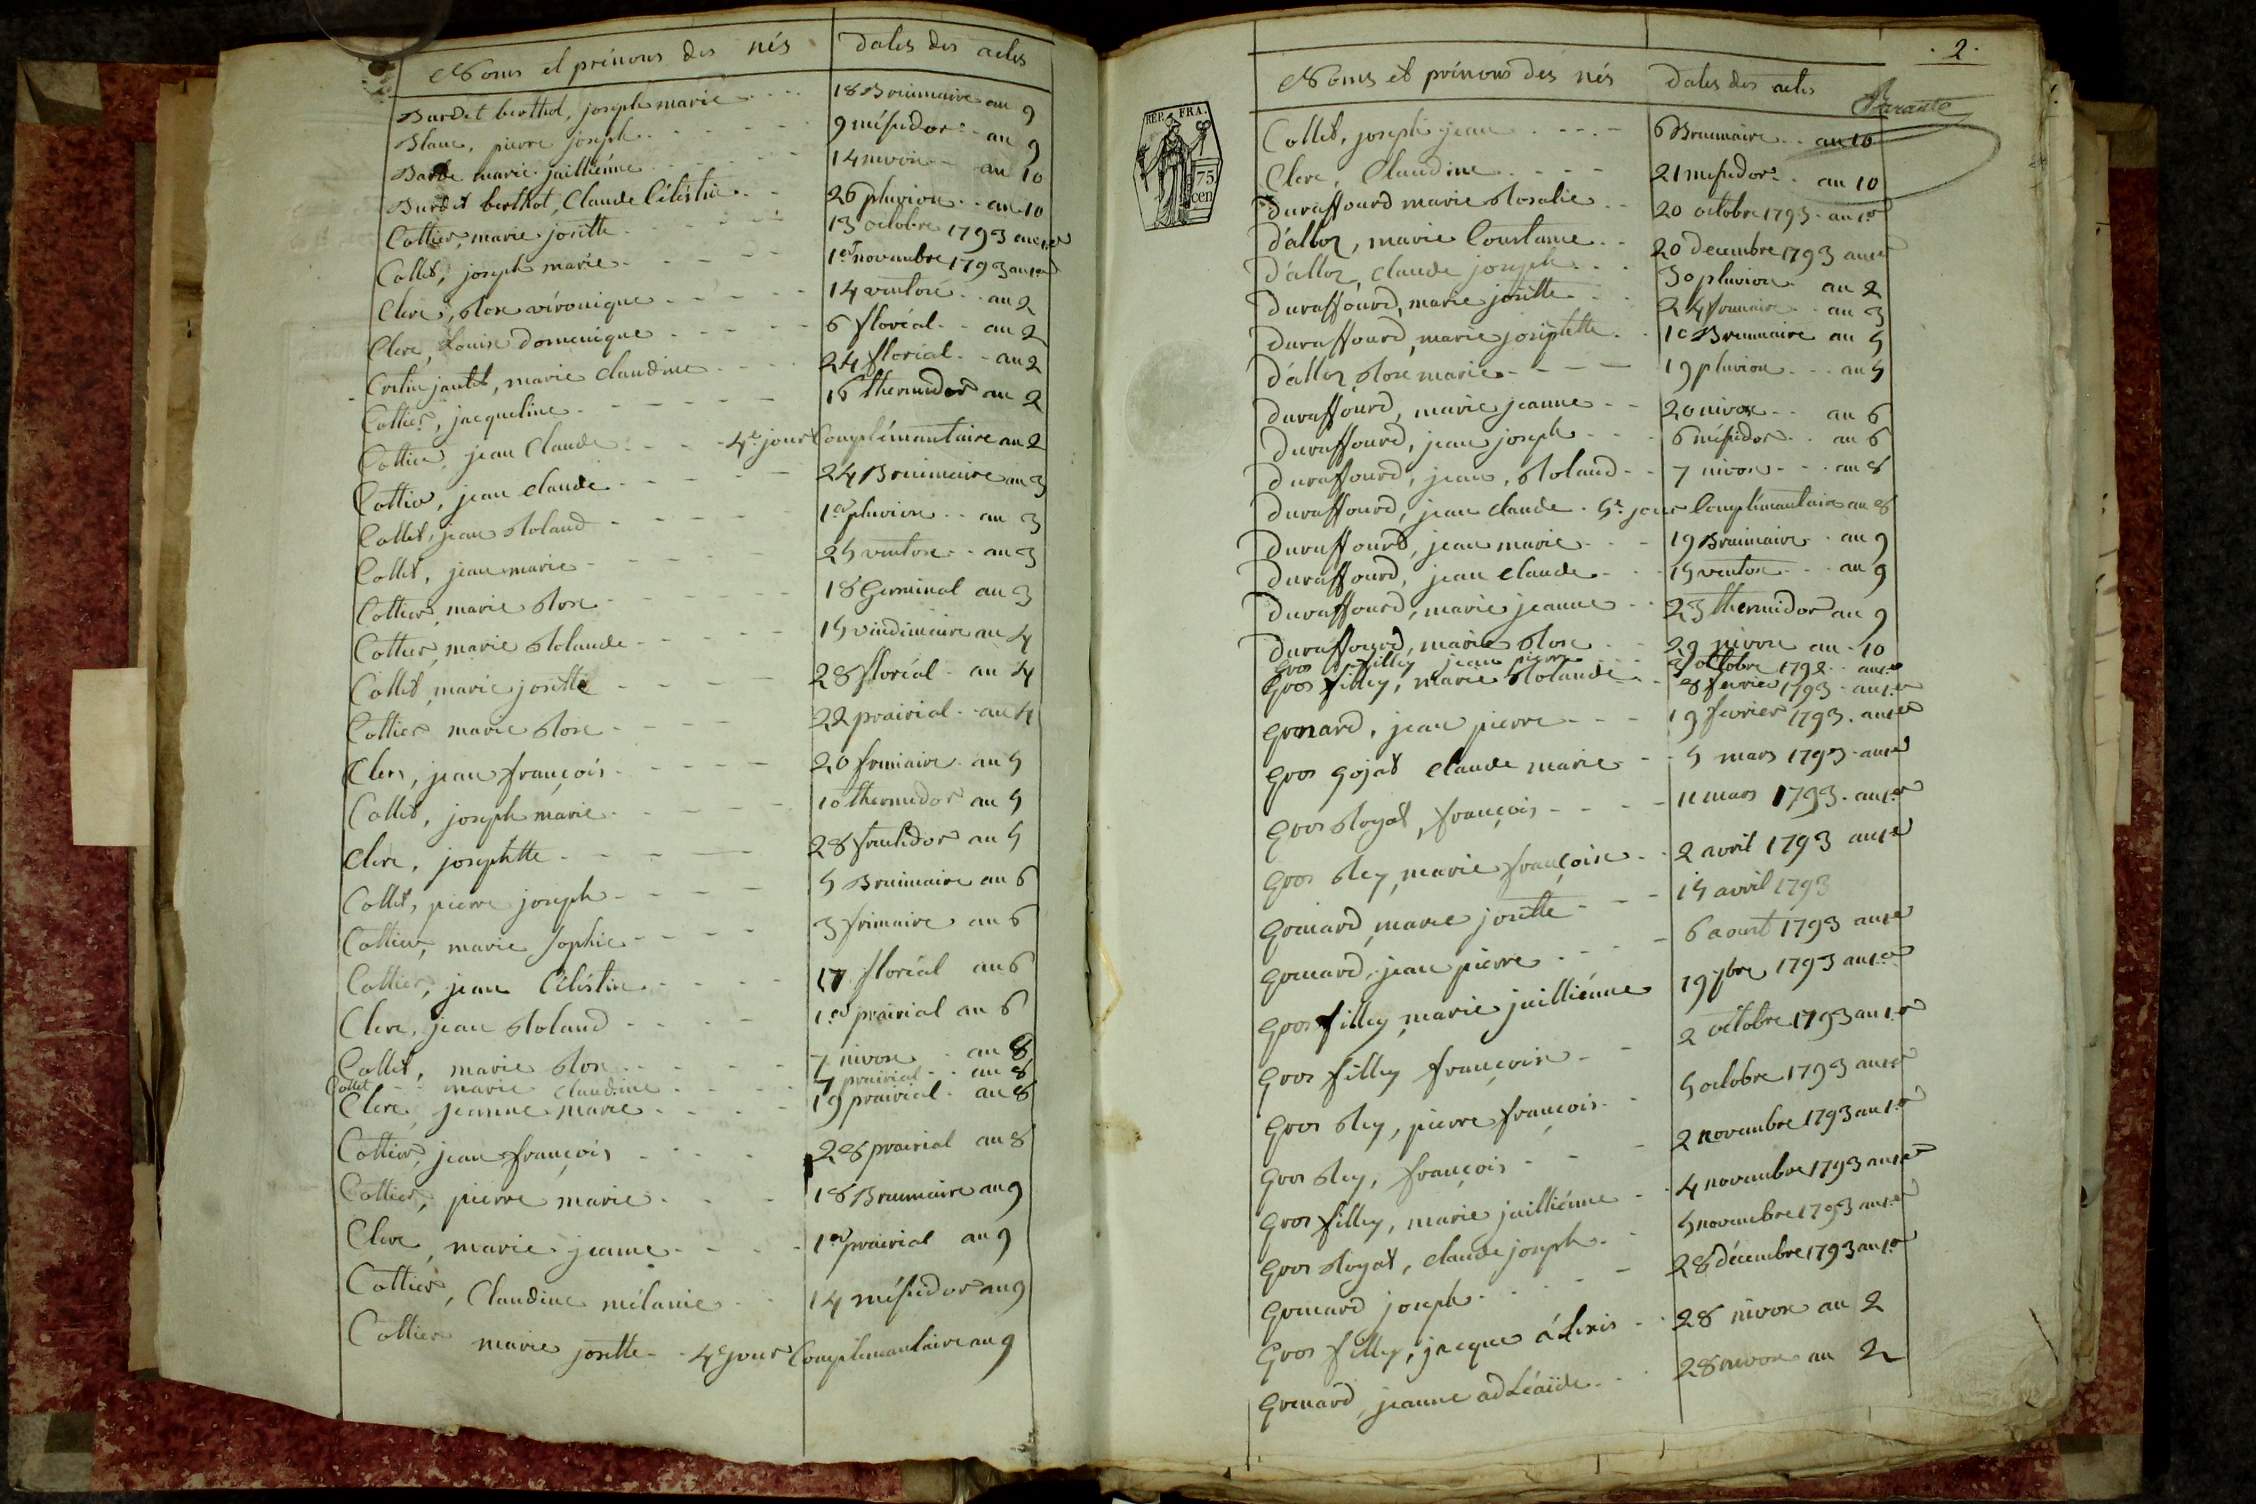 Noms et prénoms des nés Dates des actes
Burdet berthot, joseph marie 18 Brumaire an 9
Blanc, pierre joseph 9 messidor an 9
Barbe marie juilliénne 14 nivose an 10
Burdet berthot, Claude Céléstin 26 pluviose an 10
Cottier, marie josette 13 octobre 1793 an 1er
Collet, joseph marie 1er novembre 1793 an 1er
Clerc, Rose véronique 14 ventose an 2
Clerc, Louise Domenique 6 floréal an 2
jantet, marie claudine 24 floréal an 2
Cottier, jacqueline 16 thermidor an 2
Cottier, jean Claude 4e jour Complémentaire an 2
Cottier, jean claude 24 Brumaire an 3
Collet, jean Roland 1er pluviose an 3
Collet, jean marie 25 ventose an 3
Cottier, marie Rose 18 Germinal an 3
Cottier, marie Rolande 15 vindimiaire an 4
Collet, marie josette 28 floréal an 4
Cottier marie Rose 22 prairial an 4
Clerc, jean françois 20 frimaire an 5
Collet, joseph marie 10 thermidor an 5
Clerc, josephtte 28 fructidor an 5
Collet, pierre joseph 5 Brumaire an 6
Cottier, marie Sophie 3 frimaire an 6
Cottier, jean Céléstin 17 floréal an 6
Clerc, jean Roland 1er prairial an 6
Collet, marie Rose 7 nivose an 8
Collet marie claudine 7 prairial an 8
Clerc, jeanne marie 19 prairial an 8
Cottier, jean françois 28 prairial an 8
Cottier, pierre marie 18 Brumaire an 9
Clerc, marie jeanne 1er prairial an 9
Cottier, Claudine mélanie 14 messidor an 9
Cottier marie josette 4e jour Complimentaire an 9
. 2 .
Noms et prénoms des nés Dates des actes
REP. FRA.
75
cen
Collet, joseph jean 6 Brumaire an 10
Clerc, Claudine 21 messidor an 10
Duraffourd marie Rosalie 20 octobre 1793 an 1er
D'alloz, marie Constance 20 Decembre 1793 an 1er
D'alloz, claude joseph 30 pluviose an 2
Duraffourd, marie josette 24 frimaire an 3
Duraffourd, marie josephtte 10 Brumaire an 5
D'alloz Rose marie 19 pluviose an 5
Duraffourd, marie jeanne 20 nivose an 6
Duraffourd, jean joseph 6 messidor an 6
Duraffourd, jean, Roland 7 nivose an 8
Duraffourd, jean claude 5e jour Complimentaire an 8
Duraffourd, jean marie 19 Brumaire an 9
Duraffourd, jean claude 15 ventose an 9
Duraffourd, marie jeanne 23 thermidor an 9
Duraffourd, marie Rose 29 nivose an 10
Gros filley jean pierre 3 octobre 1792 an 1er
Gros filley, marie Rolande 8 fevrier 1793 an 1er
Grenard, jean pierre 19 fevrier 1793 an 1er
Gros gojat claude marie 5 mars 1793 an 1er
Gros Rogat, françois 11 mars 1793 an 1er
Gros Rey, marie françoise 2 avril 1793 an 1er
Grenard, marie josette 15 avril 1793
Grenard, jean pierre 6 aoust 1793 an 1er
Gros filley, marie juilliénne 19 7bre 1793 an 1er
Gros filley françoise 2 octobre 1793 an 1er
Gros Rey, pierre françois 5 octobre 1793 an 1er
Gros Rey, françois 2 novembre 1793 an 1er
Gros filley, marie juilliénne 4 novembre 1793 an 1er
Gros Rogat, claude joseph 5 novembre 1793 an 1er
Grenard joseph 28 décembre 1793 an 1er
Gros filley, jacque áléxis 28 nivose an 2
Grenard, jeanne adLéaïde 28 nivose an 2